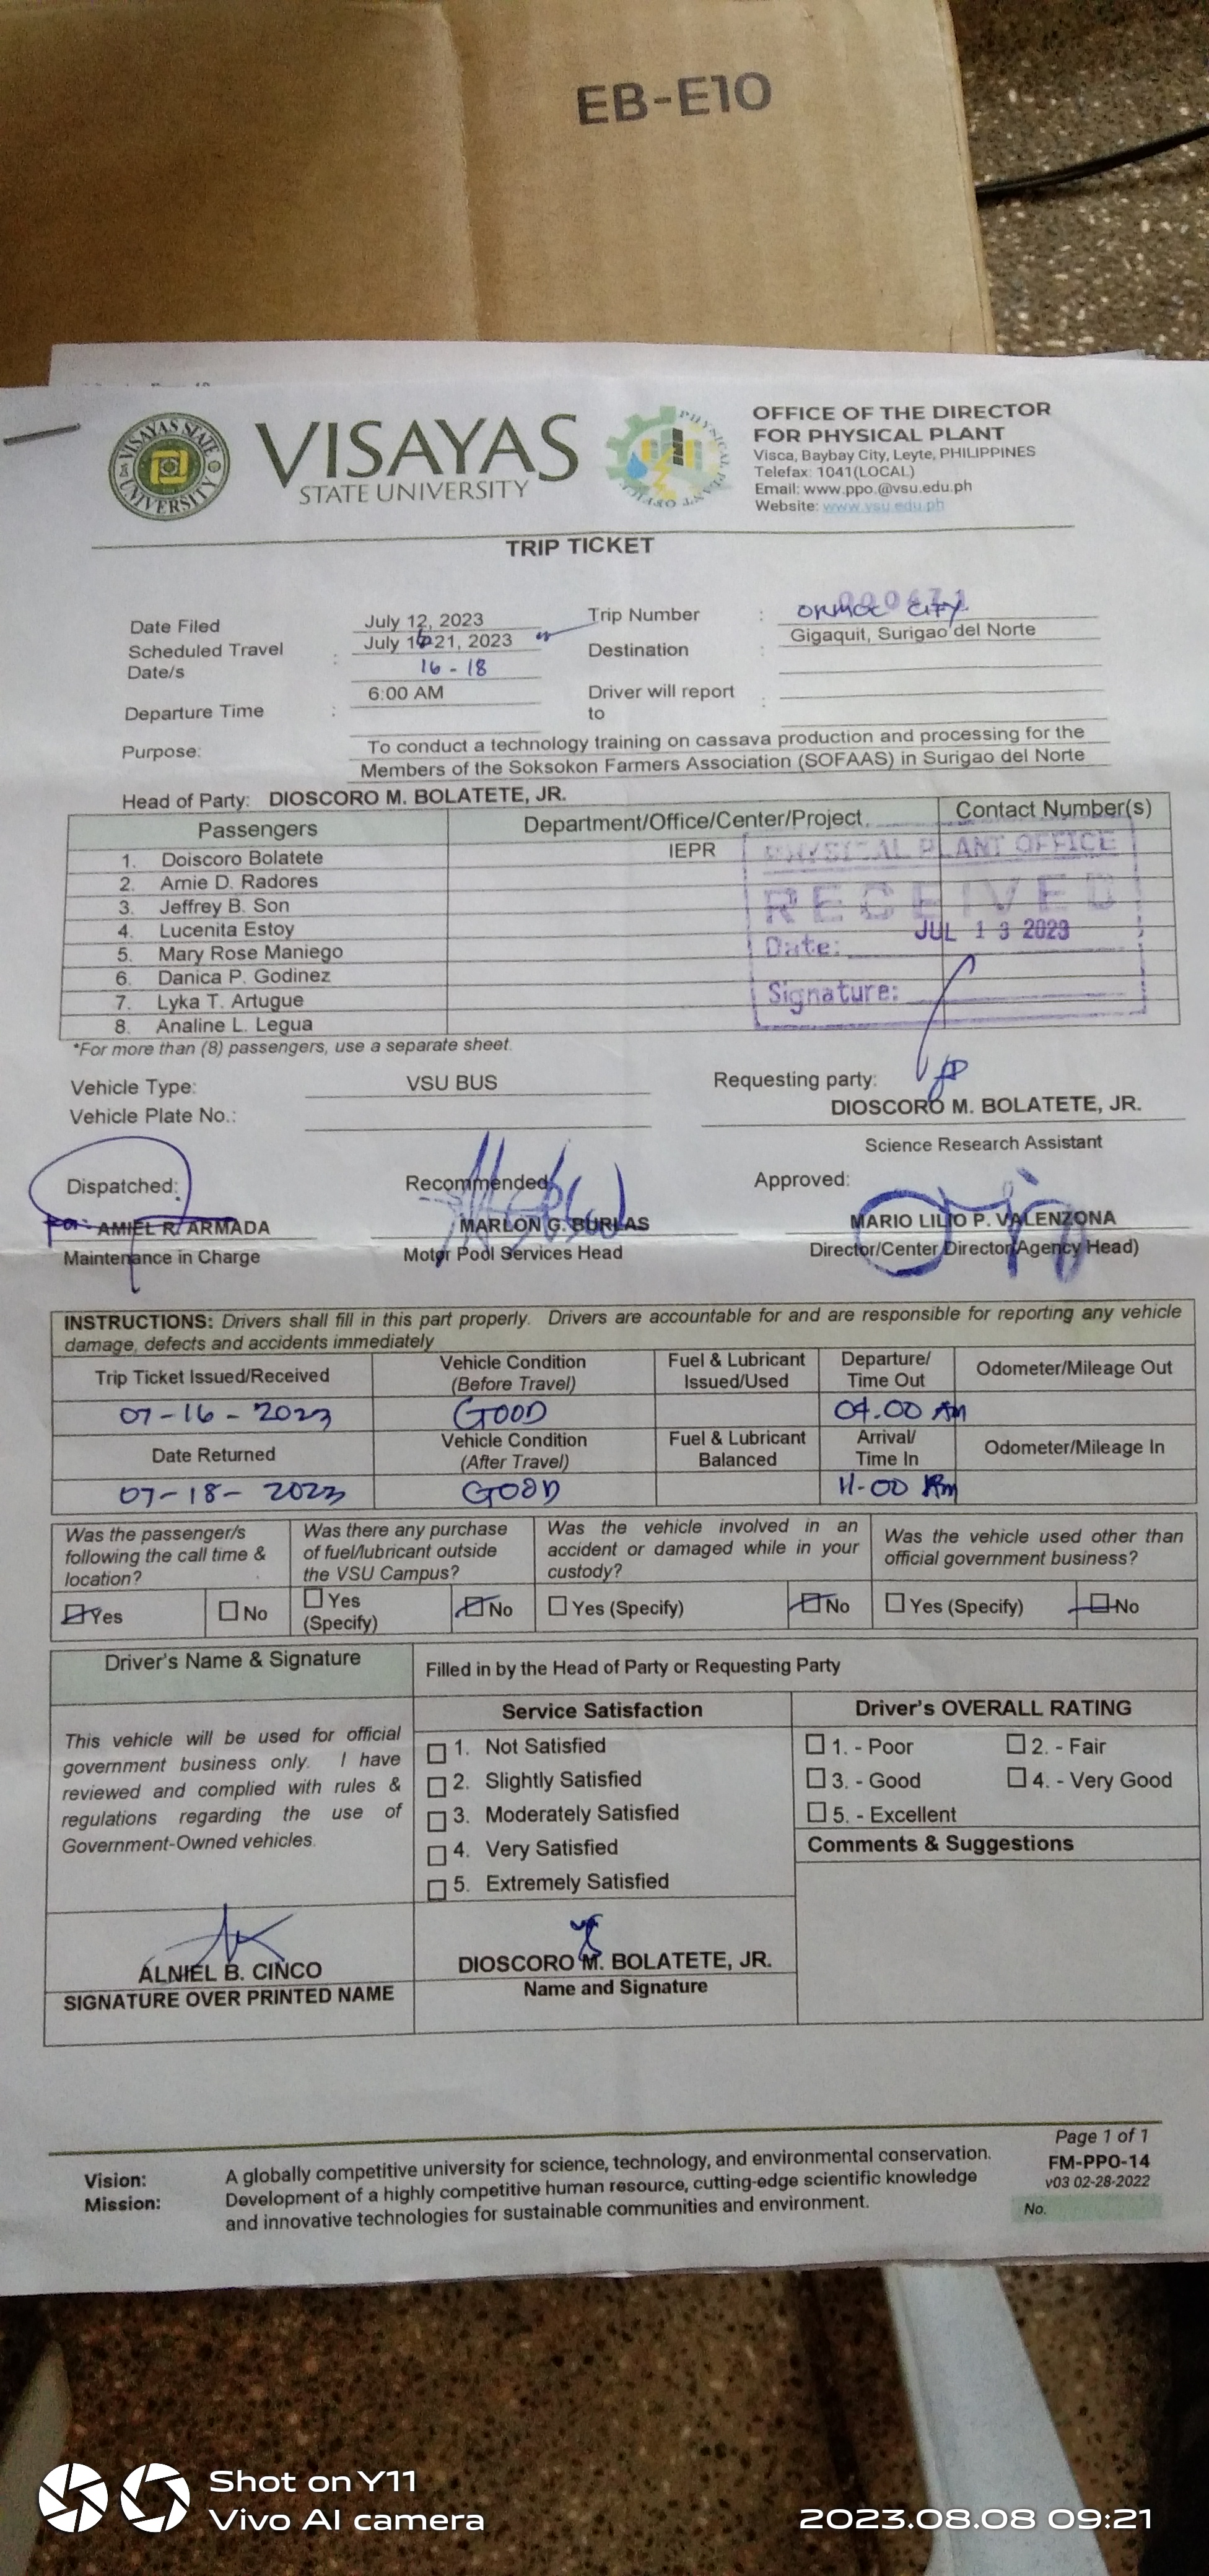 EB-E10
VISAYAS STATE UNIVERSITY
VISAYAS
STATE UNIVERSITY
PHYSICAL PLANT OFFICE
OFFICE OF THE DIRECTOR
FOR PHYSICAL PLANT
Visca, Baybay City, Leyte, PHILIPPINES
Telefax: 1041(LOCAL)
Email: www.ppo.@vsu.edu.ph
Website: www.vsu.edu.ph
TRIP TICKET
Date Filed July 12, 2023 Trip Number : ORMOC CITY
Scheduled Travel Date/s : July 16-21, 2023 Destination : Gigaquit, Surigao del Norte
16 - 18
Departure Time : 6:00 AM Driver will report to :
Purpose: To conduct a technology training on cassava production and processing for the
Members of the Soksokon Farmers Association (SOFAAS) in Surigao del Norte
Head of Party: DIOSCORO M. BOLATETE, JR.
Passengers Department/Office/Center/Project Contact Number(s)
1. Doiscoro Bolatete IEPR
2. Arnie D. Radores
3. Jeffrey B. Son
4. Lucenita Estoy
5. Mary Rose Maniego
6. Danica P. Godinez
7. Lyka T. Artugue
8. Analine L. Legua
PHYSICAL PLANT OFFICE
RECEIVED
Date: JUL 13 2023
Signature:
*For more than (8) passengers, use a separate sheet.
Vehicle Type: VSU BUS Requesting party:
Vehicle Plate No.: DIOSCORO M. BOLATETE, JR.
Science Research Assistant
Dispatched: Recommended: Approved:
For: AMIEL R. ARMADA MARLON G. BURLAS MARIO LILIO P. VALENZONA
Maintenance in Charge Motor Pool Services Head Director/Center Director/Agency Head)
INSTRUCTIONS: Drivers shall fill in this part properly. Drivers are accountable for and are responsible for reporting any vehicle
damage, defects and accidents immediately
Trip Ticket Issued/Received Vehicle Condition (Before Travel) Fuel & Lubricant Issued/Used Departure/ Time Out Odometer/Mileage Out
07-16-2023 GOOD 04.00 AM
Date Returned Vehicle Condition (After Travel) Fuel & Lubricant Balanced Arrival/ Time In Odometer/Mileage In
07-18-2023 GOOD 11-00
Was the passenger/s following the call time & location? Was there any purchase of fuel/lubricant outside the VSU Campus? Was the vehicle involved in an accident or damaged while in your custody? Was the vehicle used other than official government business?
Yes No Yes (Specify) No Yes (Specify) No Yes (Specify) No
Driver's Name & Signature Filled in by the Head of Party or Requesting Party
Service Satisfaction Driver's OVERALL RATING
This vehicle will be used for official
government business only. I have
reviewed and complied with rules &
regulations regarding the use of
Government-Owned vehicles.
1. Not Satisfied
2. Slightly Satisfied
3. Moderately Satisfied
4. Very Satisfied
5. Extremely Satisfied
1. - Poor 2. - Fair
3. - Good 4. - Very Good
5. - Excellent
Comments & Suggestions
ALNIEL B. CINCO DIOSCORO M. BOLATETE, JR.
SIGNATURE OVER PRINTED NAME Name and Signature
Page 1 of 1
FM-PPO-14
v03 02-28-2022
No.
Vision: A globally competitive university for science, technology, and environmental conservation.
Mission: Development of a highly competitive human resource, cutting-edge scientific knowledge
and innovative technologies for sustainable communities and environment.
Shot on Y11
Vivo AI camera
2023.08.08 09:21